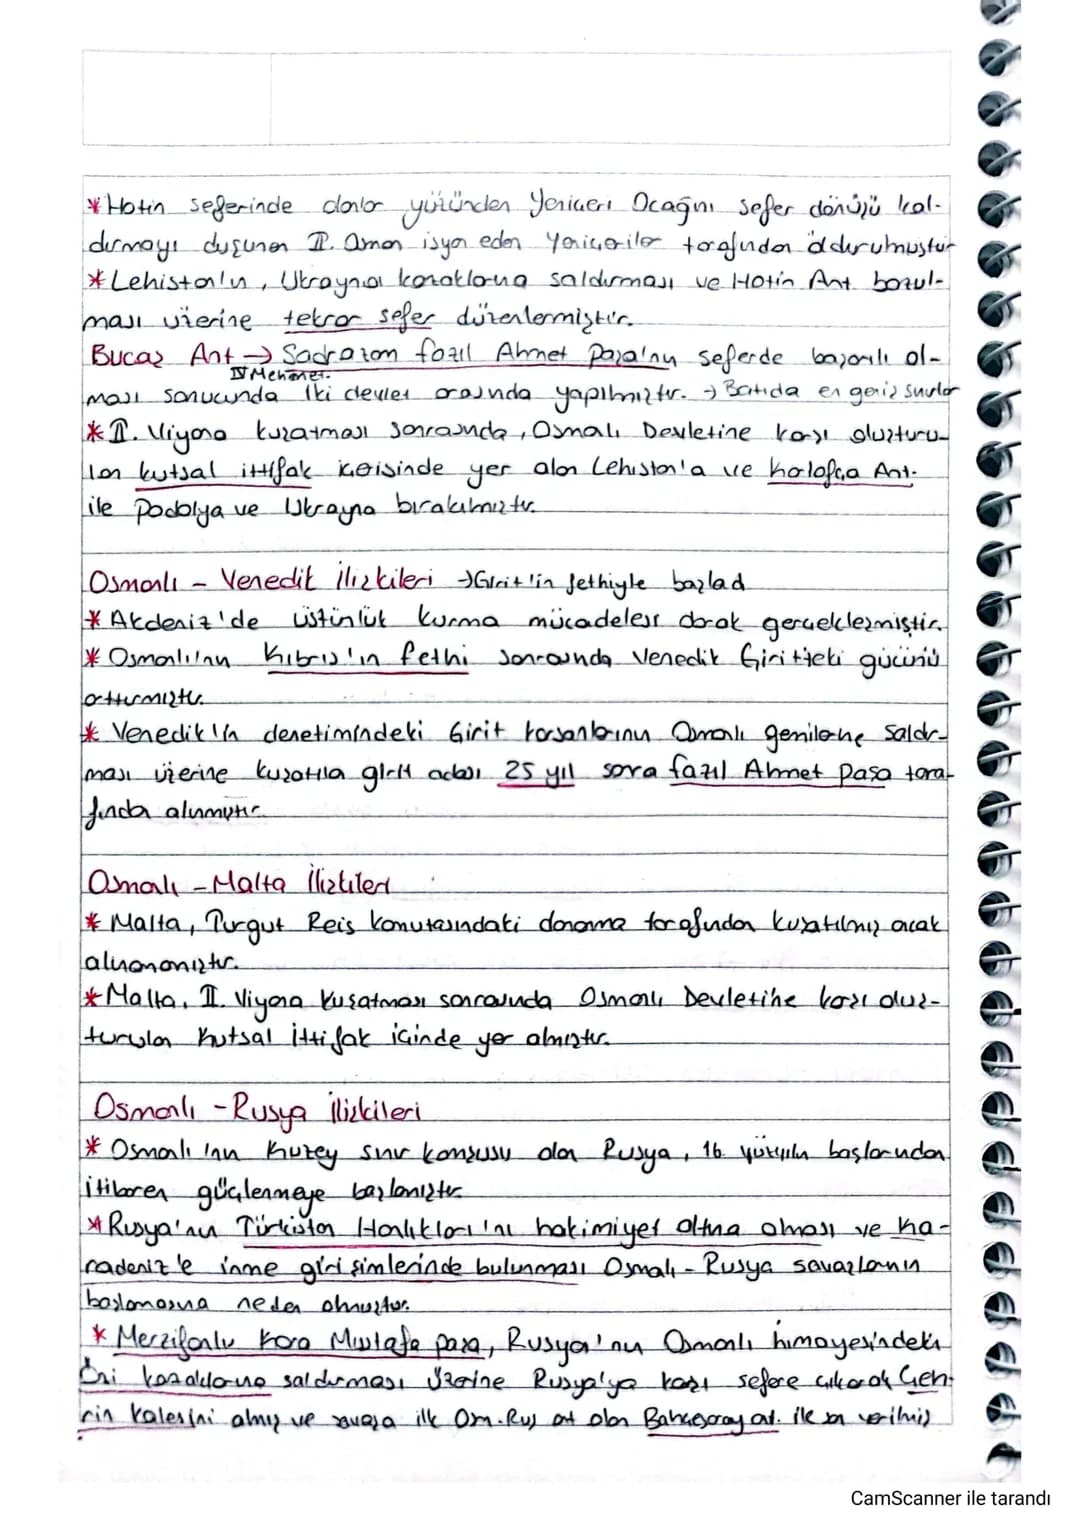 * Hotin seferinde olanlar yüzünden Yeniçeri Ocağını sefer dönüşü kal-
dırmayı düşünen II. Osman isyan eden Yeniçeriler tarafından öldürülmüştür
* Lehistan'ın, Ukrayna kazaklarına saldırması ve Hotin Ant. bozul-
ması üzerine tekrar sefer düzenlenmiştir.
Bucaş Ant → Sadrazam fazıl Ahmet Paşa'nın seferde başarılı ol-
IV Mehmet.
ması sonucunda iki devlet arasında yapılmıştır. → Batıda en geniş sınırlar
* II. Viyana kuşatması sonrasında, Osmalı Devletine karşı oluşturu-
lan kutsal ittifak içerisinde yer alan Lehistan'a ve karlofça Ant.
ile Podolya ve Ukrayna bırakılmıştır.
Osmanlı - Venedik İlişkileri → Girit'in fethiyle başladı
* Akdeniz'de üstünlük kurma mücadelesi olarak gerçekleşmiştir.
* Osmanlı'nın Kıbrıs'ın fethi sonrasında Venedik Girit'teki gücünü
arttırmıştır.
* Venedik'in denetimindeki Girit korsanlarının Osmalı gemilerine saldır-
ması üzerine kuşatıla girit adası 25 yıl sonra fazıl Ahmet Paşa tara-
fında alınmıştır.
Osmalı - Malta İlişkileri
* Malta, Turgut Reis komutasındaki donanma tarafından kuşatılmış ancak
alınamamıştır.
* Malta, II. Viyana Kuşatması sonrasında Osmalı Devletine karşı oluş-
turulan Kutsal İttifak içinde yer almıştır.
Osmanlı - Rusya İlişkileri
* Osmanlı'nın Kuzey sınır komşusu olan Rusya, 16. yüzyılın başlarından
itibaren güçlenmeye başlamıştır.
* Rusya'nın Türkistan Hanlıkları'nı hakimiyet altına alması ve Ka-
radeniz'e inme girişimlerinde bulunması Osmalı - Rusya savaşlarının
başlamasına neden olmuştur.
* Merzifonlu Kara Mustafa paşa, Rusya'nın Osmalı himayesindeki
kazaklarına saldırması üzerine Rusya'ya karşı sefere çıkarak Çeh-
rin Kalesini almış ve savaşa ilk Osm-Rus ant olan Bahçesaray ant. ile son verilmiş
CamScanner ile tarandı